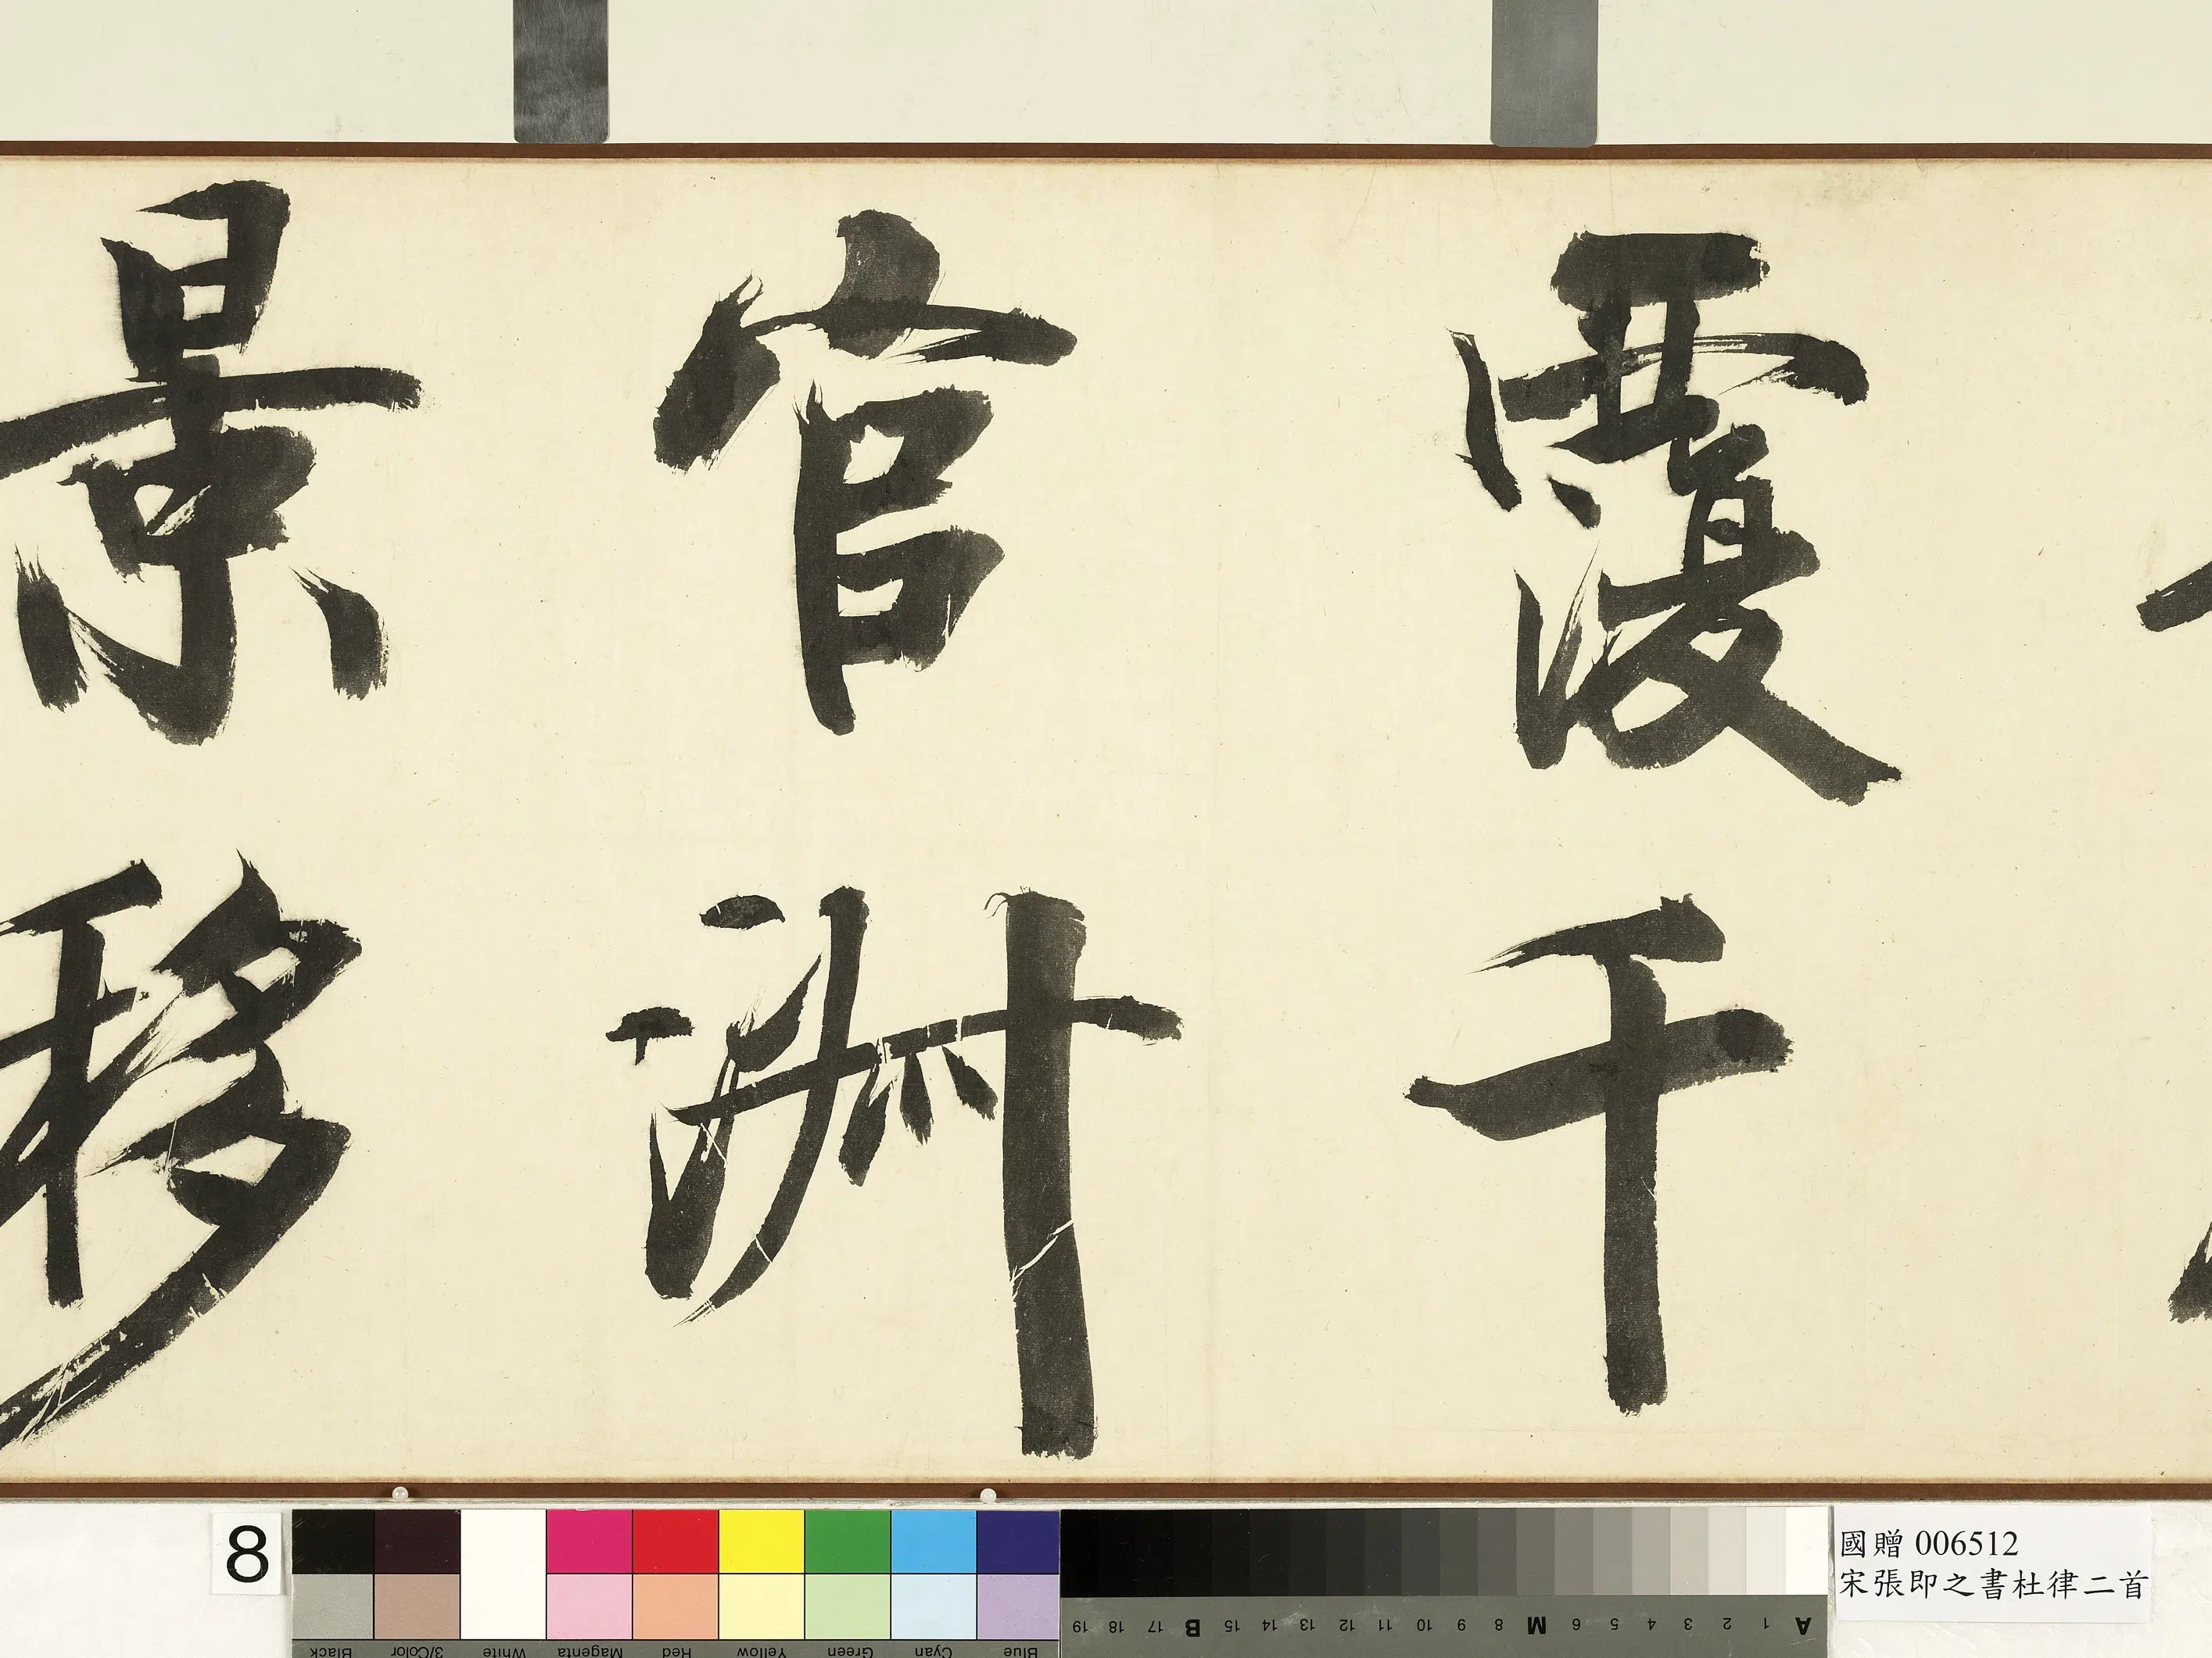 覆千
官淑
景移
8
國贈 006512
宋張即之書杜律二首
Blue Cyan Green Yellow Red Magenta White 3/Color Black
A 1 2 3 4 5 6 M 8 9 10 11 12 13 14 15 B 17 18 19